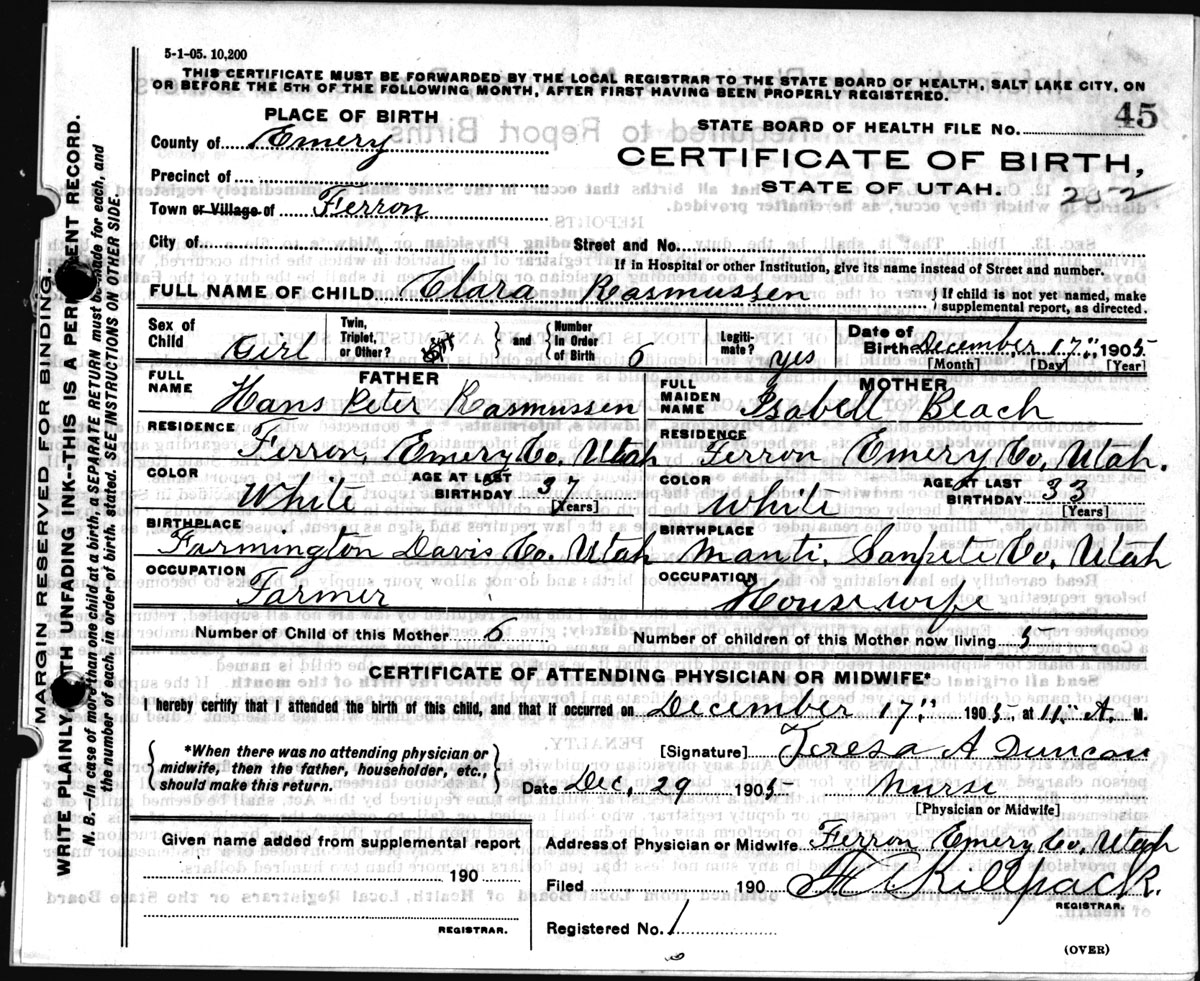 5-1-05. 10,200
THIS CERTIFICATE MUST BE FORWARDED BY THE LOCAL REGISTRAR TO THE STATE BOARD OF HEALTH, SALT LAKE CITY, ON
OR BEFORE THE 5TH OF THE FOLLOWING MONTH, AFTER FIRST HAVING BEEN PROPERLY REGISTERED.
MARGIN RESERVED FOR BINDING.
WRITE PLAINLY WITH UNFADING INK-THIS IS A PERMANENT RECORD.
N. B.-In case of more than one child at a birth, a SEPARATE RETURN must be made for each, and
the number of each, in order of birth, stated. SEE INSTRUCTIONS ON OTHER SIDE.
PLACE OF BIRTH
County of Emery
Precinct of
Town or Village of Ferron
City of
STATE BOARD OF HEALTH FILE No. 45
CERTIFICATE OF BIRTH,
STATE OF UTAH.
252
Street and No.
If in Hospital or other Institution, give its name instead of Street and number.
FULL NAME OF CHILD Clara Rasmussen
If child is not yet named, make
supplemental report, as directed.
Sex of Child Girl
Twin, Triplet, or Other?
and
Number In Order of Birth 6
Legitimate? yes
Date of Birth December 17", 1905
[Month] [Day] [Year]
FATHER
FULL NAME Hans Peter Rasmussen
RESIDENCE Ferron, Emery Co, Utah
COLOR White
AGE AT LAST BIRTHDAY 37
[Years]
BIRTHPLACE
Farmington Davis Co. Utah
OCCUPATION
Farmer
MOTHER
FULL MAIDEN NAME Isabell Beach
RESIDENCE
Ferron Emery Co, Utah.
COLOR White
AGE AT LAST BIRTHDAY 33
[Years]
BIRTHPLACE
Manti, Sanpete Co, Utah
OCCUPATION
Housewife
Number of Child of this Mother 6
Number of children of this Mother now living 5
CERTIFICATE OF ATTENDING PHYSICIAN OR MIDWIFE*
I hereby certify that I attended the birth of this child, and that it occurred on December 17", 1905, at 11" A. M.
*When there was no attending physician or
midwife, then the father, householder, etc.,
should make this return.
[Signature] Teresa A Duncan
Date Dec, 29 1905 Nurse
[Physician or Midwife]
Given name added from supplemental report
190
REGISTRAR.
Address of Physician or Midwife Ferron Emery Co, Utah
Filed 190 Killpack
REGISTRAR.
Registered No. 1
(OVER)